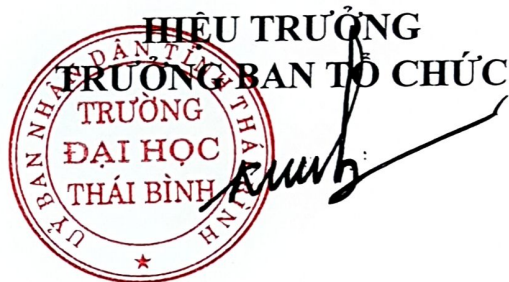 HIỆU TRƯỞNG
TRƯỞNG BAN TỔ CHỨC
UỶ BAN NHÂN DÂN TỈNH THÁI BÌNH
TRƯỜNG
ĐẠI HỌC
THÁI BÌNH